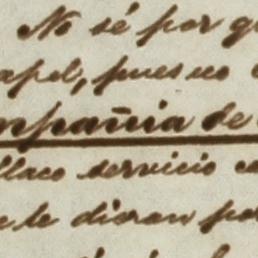 No sé por q
apel, pues no
mpañia de
llaco servicio
le dieran por